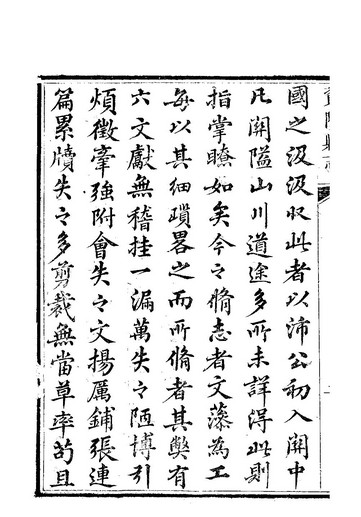 國之汲汲收此者以沛公初入關中
凡關隘山川道途多所未詳得此則
指掌瞭如矣今之脩志者文藻為工
每以其細瑣畧之而所脩者其獘有
六文獻無稽挂一漏萬失之陋博引
煩徵牽強附會失之文揚厲鋪張連
篇累牘失之多剪裁無當草率苟且